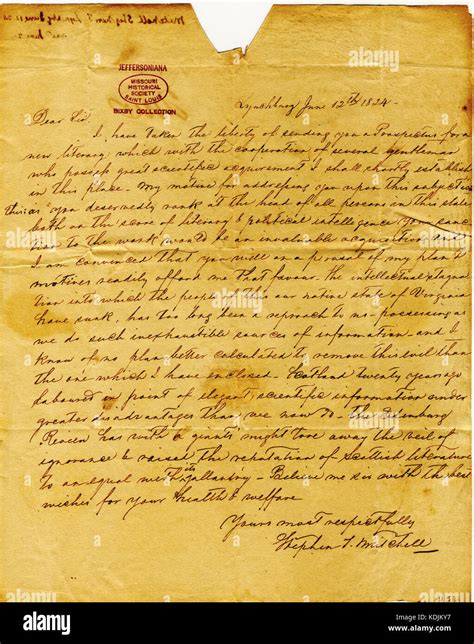 Mitchell Stephen T. Lynchbg June 12. 24
JEFFERSONIANA
MISSOURI
HISTORICAL
SOCIETY
SAINT LOUIS
BIXBY COLLECTION
Lynchburg June 12th 1824
Dear Sir,
I have taken the liberty of sending you a Prospectus for a
new literary which with the cooperation of several gentleman
who possess great scientific acquirement I shall shortly establish
in this place. My motive for addressing you upon this subject
this is as you deservedly rank at the head of all persons in this state
both on the score of literary & political intelligence your
to the work would be an invaluable acquisition
I am convinced that you will on a perusal of my plan &
motives readily afford me that favour. the intellectual stagna
tion into which the people of this our native state of Virginia
have sunk, has too long been a reproach to us possessing as
we do such inexhaustible sources of information and I
know of no plan better calculated to remove this evil than
the one which I have enclosed. Scotland twenty years ago
laboured in point of elegant & scientific information under
greater disadvantages than we now do - The Edinburg
Review has with a giants might tore away the veil of
ignorance & raised the reputation of Scottish literature
to an equal with its gallantry - Believe me sir with the best
wishes for your health & welfare
Yours most respectfully
Stephen T. Mitchell
alamy
Image ID: KDJKY7
www.alamy.com